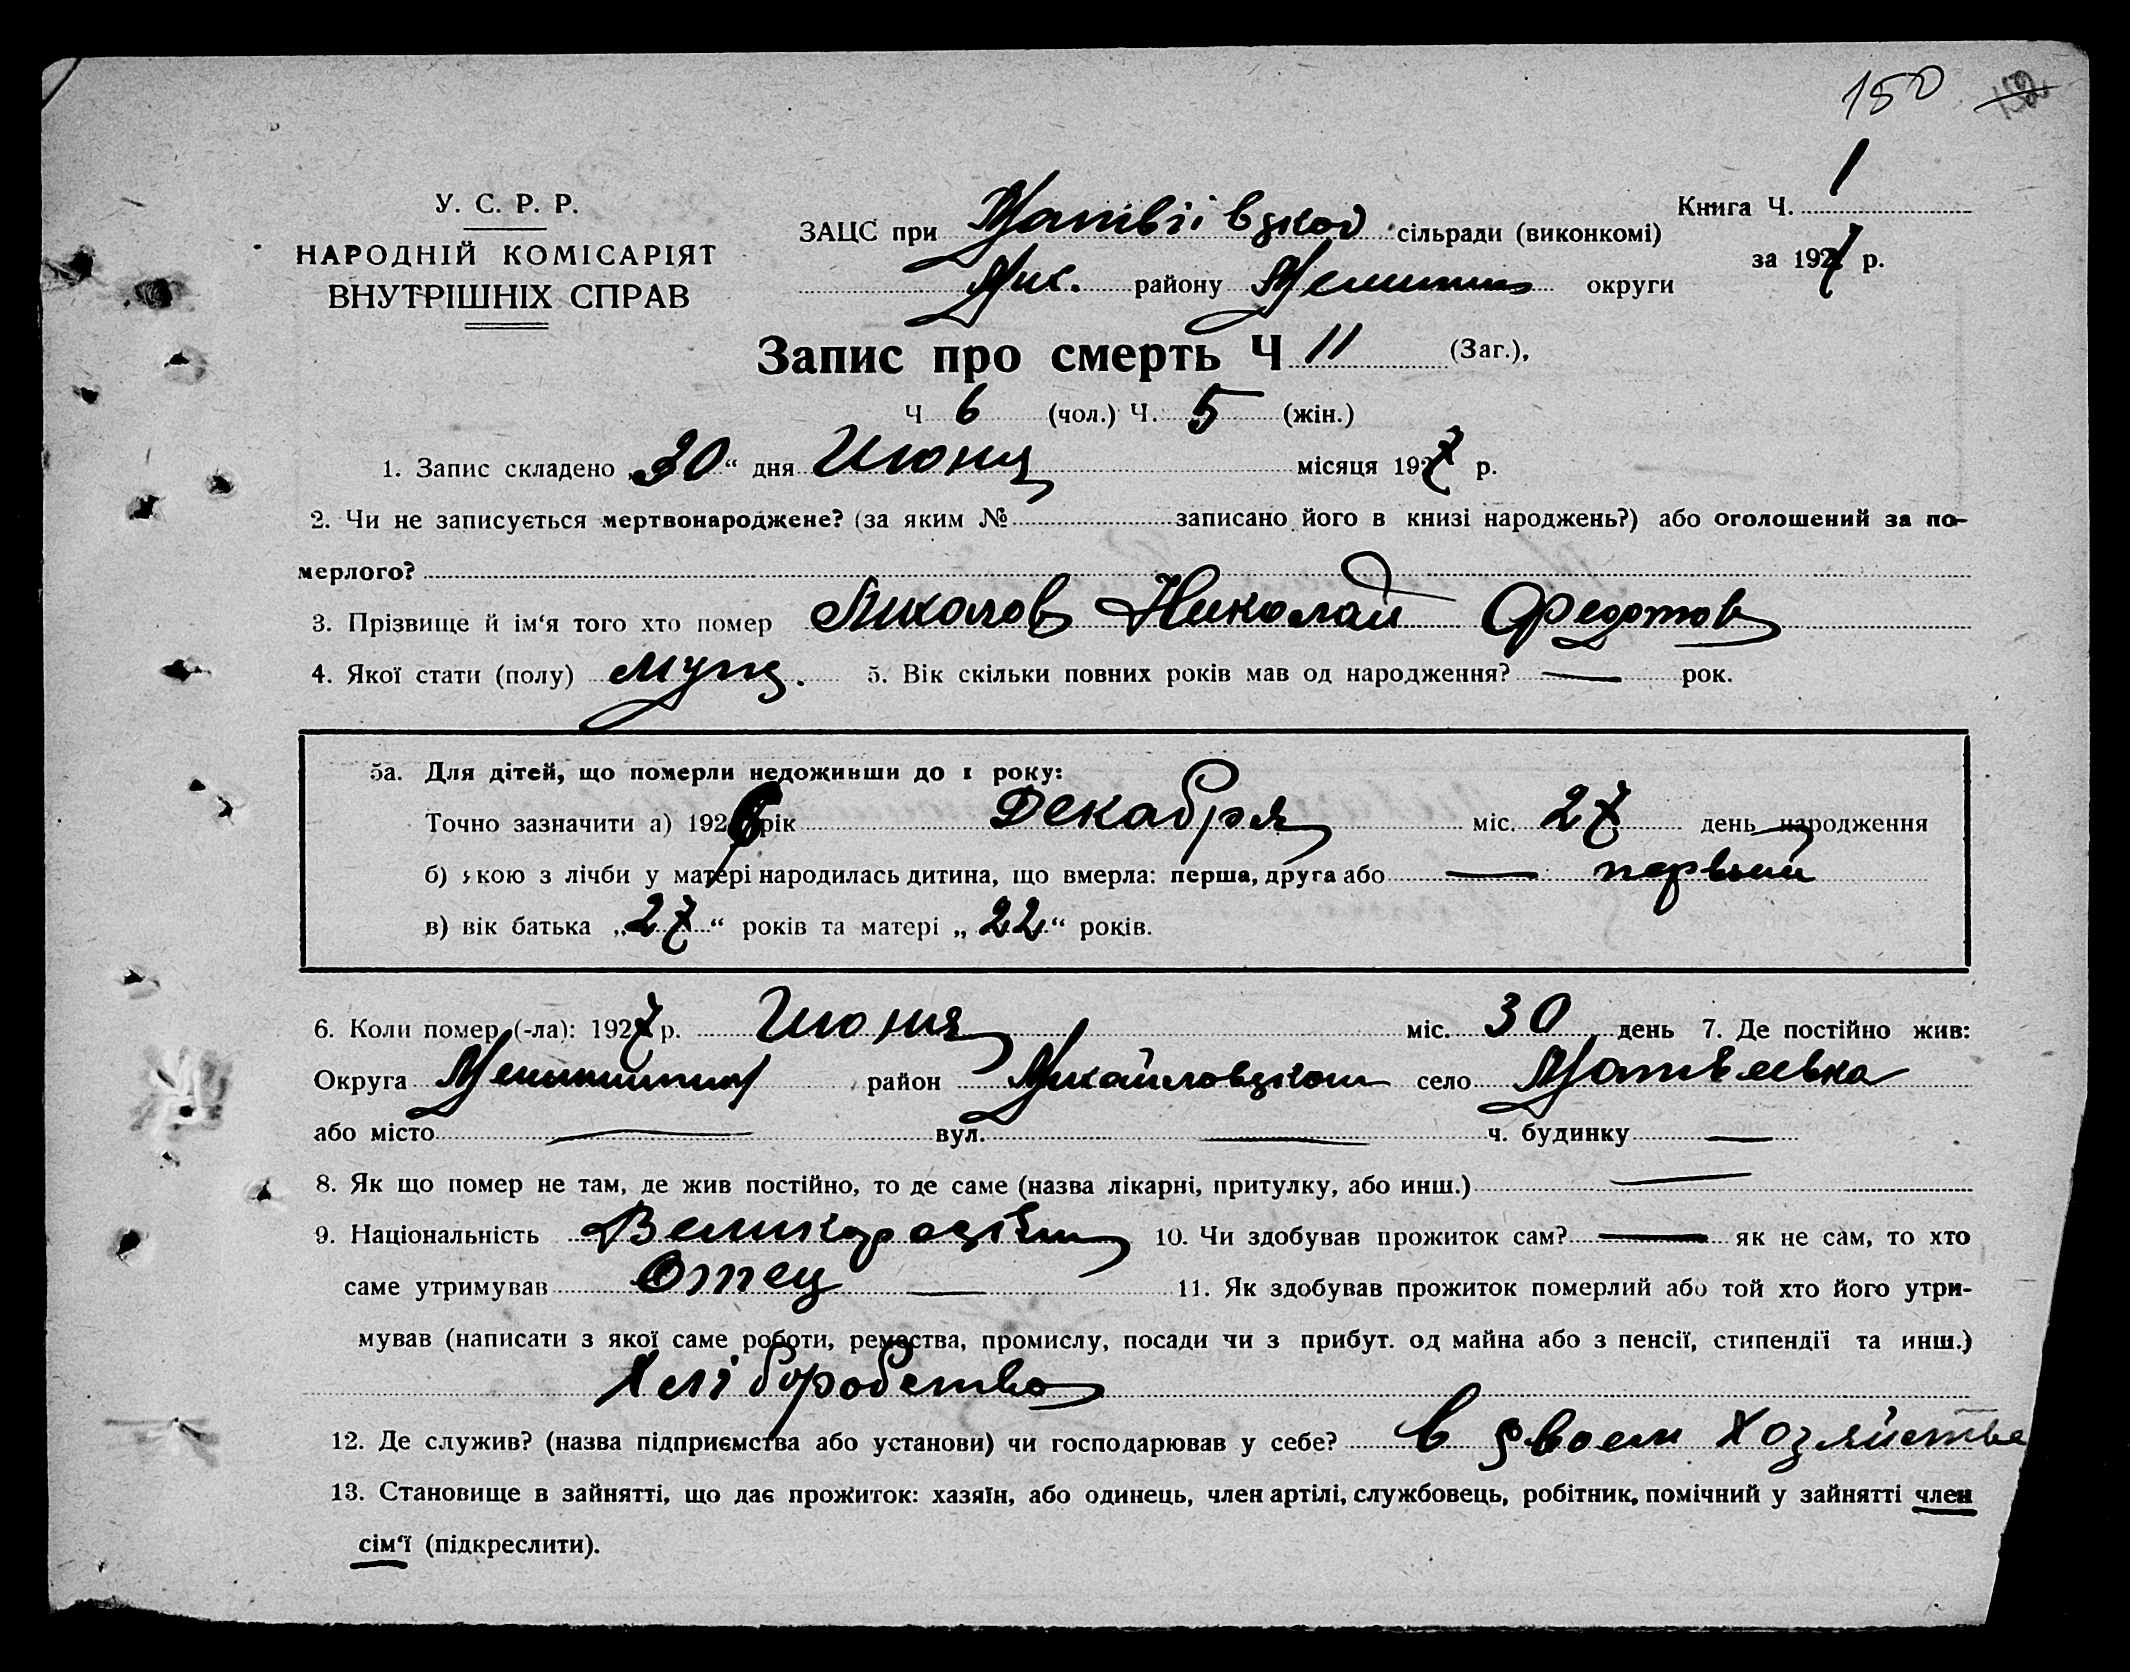 150 152
У. С. Р. Р.
НАРОДНІЙ КОМІСАРІЯТ
ВНУТРІШНІХ СПРАВ
ЗАЦС при Матвіївской сільради (виконкомі)
Мих. району Мелитоп округи
Книга Ч. 1
за 1927 р.
Запис про смерть Ч 11 (Заг.),
Ч 6 (чол.) Ч. 5 (жін.)
1. Запис складено „30“ дня Июня місяця 1927 р.
2. Чи не записується мертвонароджене? (за яким № записано його в книзі народжень?) або оголошений за по-
мерлого?
3. Прізвище й ім‘я того хто помер Николай Федотов
4. Якої стати (полу) муж. 5. Вік скільки повних років мав од народження? — рок.
5а. Для дітей, що померли недоживши до 1 року:
Точно зазначити а) 1926 рік Декабря міс. 27 день народження
б) якою з лічби у матері народилась дитина, що вмерла: перша, друга або — первый
в) вік батька „27“ років та матері „22“ років.
6. Коли помер (-ла): 1927 р. Июня міс. 30 день 7. Де постійно жив:
Округа район Михайловском село Матвеевка
або місто — вул. — ч. будинку —
8. Як що помер не там, де жив постійно, то де саме (назва лікарні, притулку, або инш.) —
9. Національність 10. Чи здобував прожиток сам? — як не сам, то хто
саме утримував Отец — 11. Як здобував прожиток померлий або той хто його утри-
мував (написати з якої саме роботи, ремества, промислу, посади чи з прибут. од майна або з пенсії, стипендії та инш.)
Хліборобство
12. Де служив? (назва підприємства або установи) чи господарював у себе? в своем Хозяйстве
13. Становище в зайнятті, що дає прожиток: хазяїн, або одинець, член артілі, службовець, робітник, помічний у зайнятті член
сім‘ї (підкреслити).